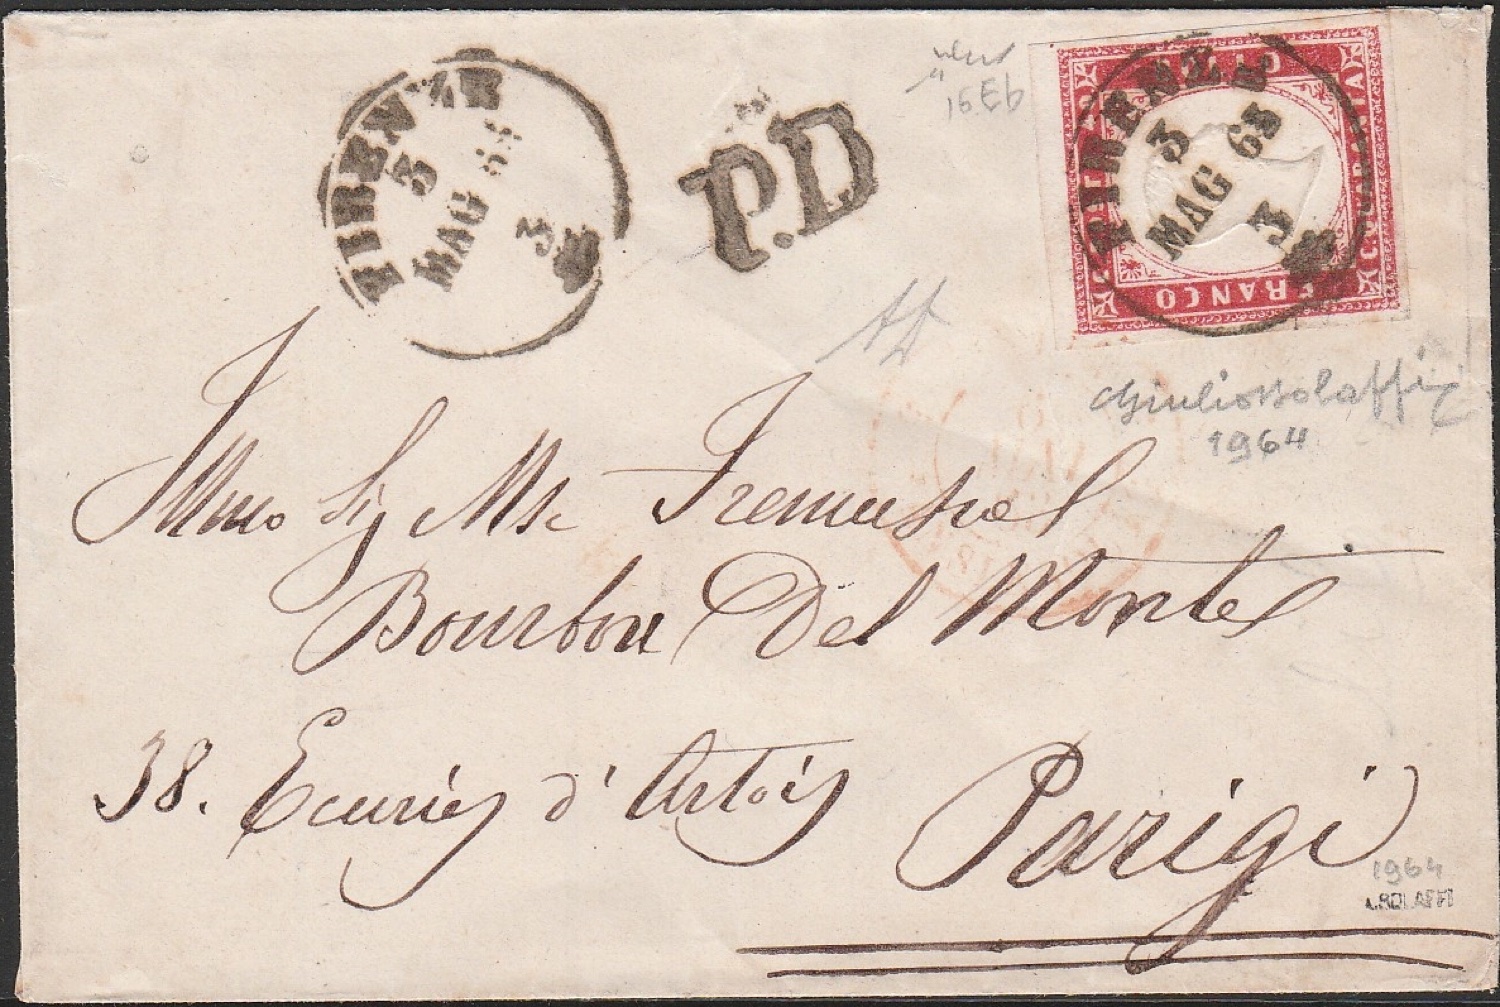 FIRENZE
3
MAG 63
3
P.D
16Eb
C. QUARANTA
FRANCO
FIRENZE
3
MAG 63
3
Giulio Bolaffi
1964
Illmo Sig Mse
Bourbon Del Monte
38. Ecuries d'Artois
Parigi
1964
A.BOLAFFI